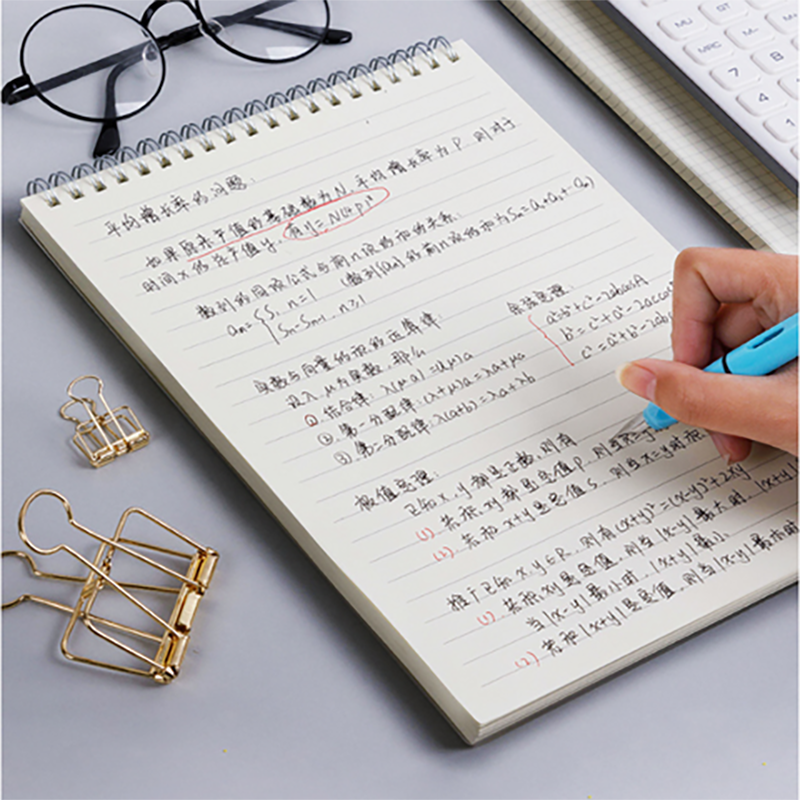 平均增长率的问题:
如果原来产值的基础数为N,平均增长率为P,则对于
时间x的总产值y,有y=N(1+p)ˣ
数列的同项公式与前n项的和的关系:
an={S₁, n=1 (数列{an}的前n项的和为Sn=a₁+a₂+…+an)
Sn-Sn-1, n≥1
实数与向量的积的运算律:
设λ,μ为实数,那么
① 结合律: λ(μa)=(λμ)a
② 第一分配律: (λ+μ)a=λa+μa
③ 第二分配律: λ(a+b)=λa+λb
余弦定理:
a²=b²+c²-2bcosA
b²=c²+a²-2accosB
c²=a²+b²-2ab
极值定理:
已知x,y都是正数,则有
(1) 若积xy都是定值p,则当x=y
(2) 若和x+y是定值s,则当x=y时积
推广已知x,y∈R,则有(x+y)²=(x-y)²+2xy
(1) 若积xy是定值,则当|x-y|最大时,|x+y|
当|x-y|最小时,|x+y|最小
(2) 若和|x+y|是定值,则当|x-y|最大时
MU
GT
MRC
M-
7
8
4
1